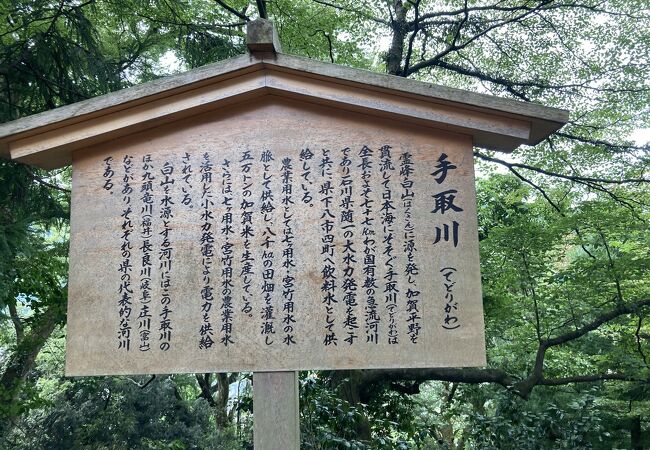 手取川（てどりがわ）
霊峰白山（はくさん）に源を発し、加賀平野を
貫流して日本海にそそぐ手取川（てどりがわ）は
全長およそ七十七㎞わが国有数の急流河川
であり石川県随一の大水力発電を起こす
と共に県下八市四町へ飲料水として供
給している。
農業用水としては七ヶ用水・宮竹用水の水
脈として供給し、八千㏊の田畑を灌漑し
五万㌧の加賀米を生産している。
さらに七ヶ用水・宮竹用水の農業用水
を活用した小水力発電により電力を供給
されている。
白山を水源とする河川にはこの手取川の
ほか九頭竜川（福井）長良川（岐阜）庄川（富山）
などがありそれぞれの県の代表的な河川
である。